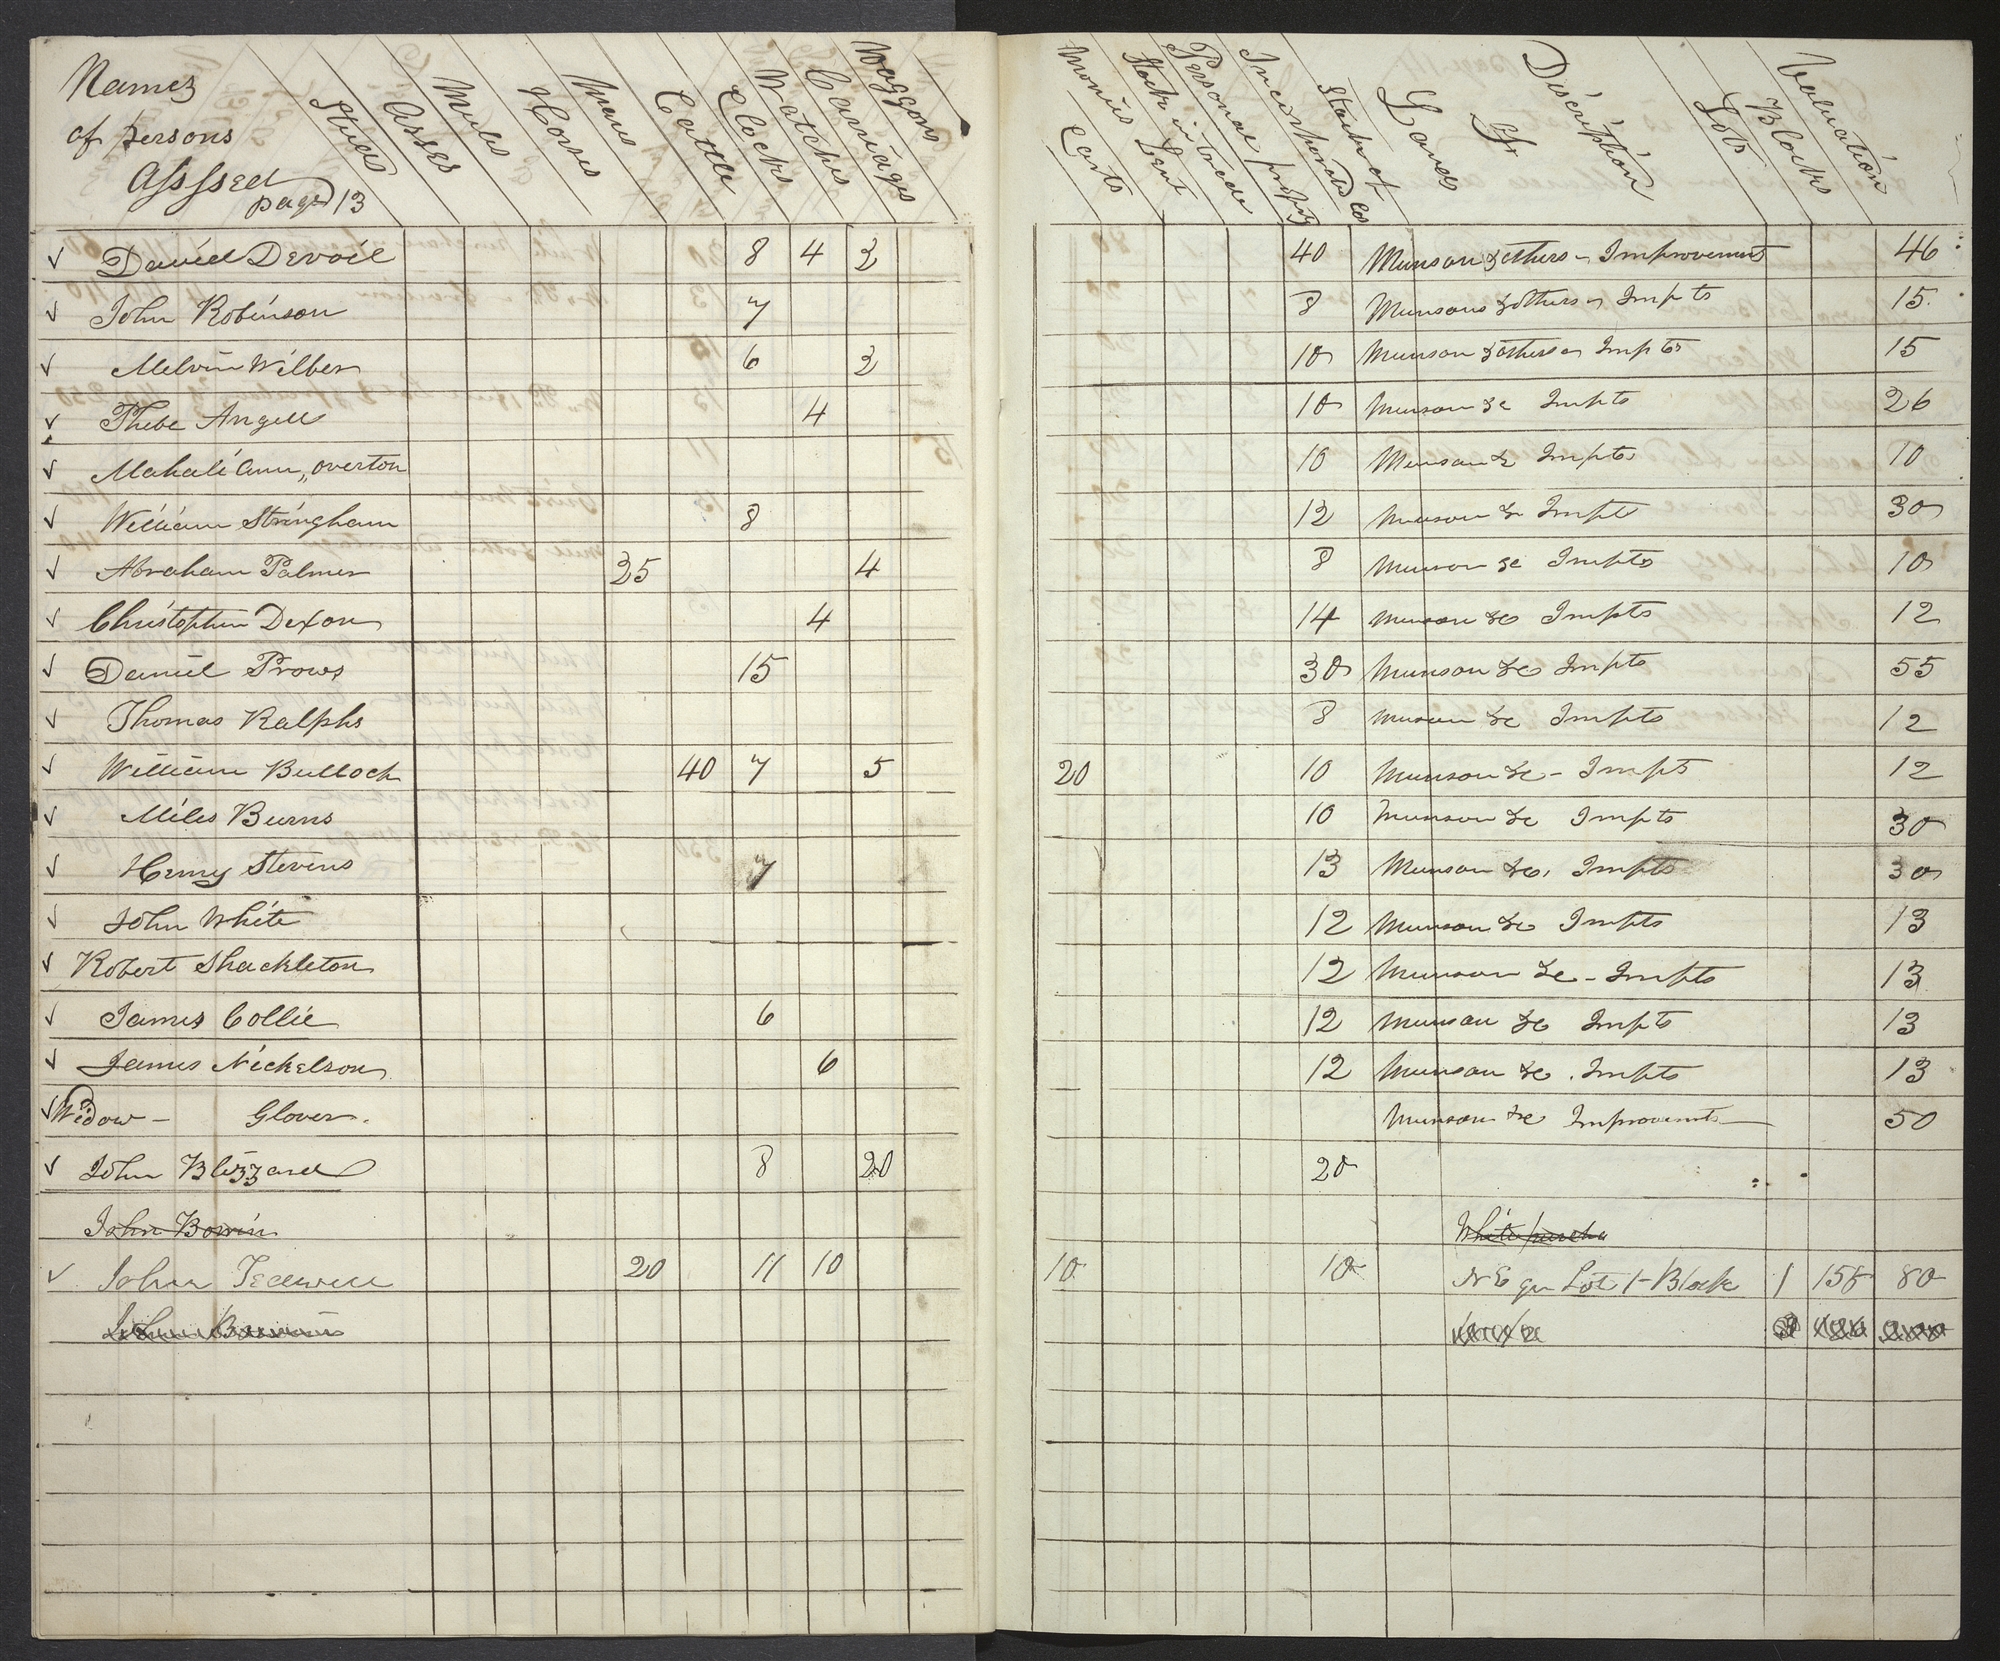 Names
of persons
Assssed
page 13
Stuers Asses Mules Horses Mares Cattle Clocks Watches Carriages Waggons
Carts Monies Lent Stock in trade Personal propty Incorporated Cos Stock of Lands Discription of Lots Blocks Valuation
✓ Daniel Devoil 8 4 3 40 Munson & others - Improvements 46
✓ John Robinson 7 8 Munsons & others - Impts 15
✓ Melvin Wilber 6 3 10 Munson & others - Impts 15
✓ Phebe Angell 4 10 Munson &c Impts 26
✓ Mahali Ann Overton 10 Munson &c Impts 10
✓ William Stringham 8 12 Munson &c Impts 30
✓ Abraham Palmer 35 4 8 Munson &c Impts 10
✓ Christopher Dexon 4 14 Munson &c Impts 12
✓ Daniel Prows 15 30 Munson &c Impts 55
✓ Thomas Ralphs 8 Munson &c Impts 12
✓ William Bullock 40 7 5 20 10 Munson &c - Impts 12
✓ Miles Burns 10 Munson &c Impts 30
✓ Henry Stevens 7 13 Munson &c. Impts 30
✓ John White 12 Munson &c Impts 13
✓ Robert Shackleton 12 Munson &c - Impts 13
✓ James Collie 6 12 Munson &c Impts 13
✓ James Nickelson 6 12 Munson &c . Impts 13
✓ Widow - Glover. Munson &c Improvemts 50
✓ John Blizzard 8 20 20
John Bowin White purcha
✓ John 20 11 10 10 10 N E qr Lot 1 - Block 1 158 80
John Bowin